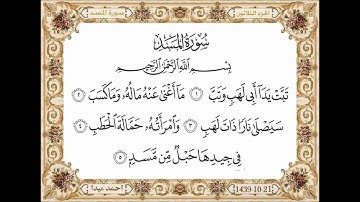 الجزء الثلاثون
سورة المسد
سُورَةُ المَسَدِ
بِسْمِ اللَّهِ الرَّحْمَٰنِ الرَّحِيمِ
تَبَّتْ يَدَا أَبِي لَهَبٍ وَتَبَّ ١ مَا أَغْنَىٰ عَنْهُ مَالُهُ وَمَا كَسَبَ ٢
سَيَصْلَىٰ نَارًا ذَاتَ لَهَبٍ ٣ وَامْرَأَتُهُ حَمَّالَةَ الْحَطَبِ ٤
فِي جِيدِهَا حَبْلٌ مِّن مَّسَدٍ ٥
احمد ميدا
1439-10-21